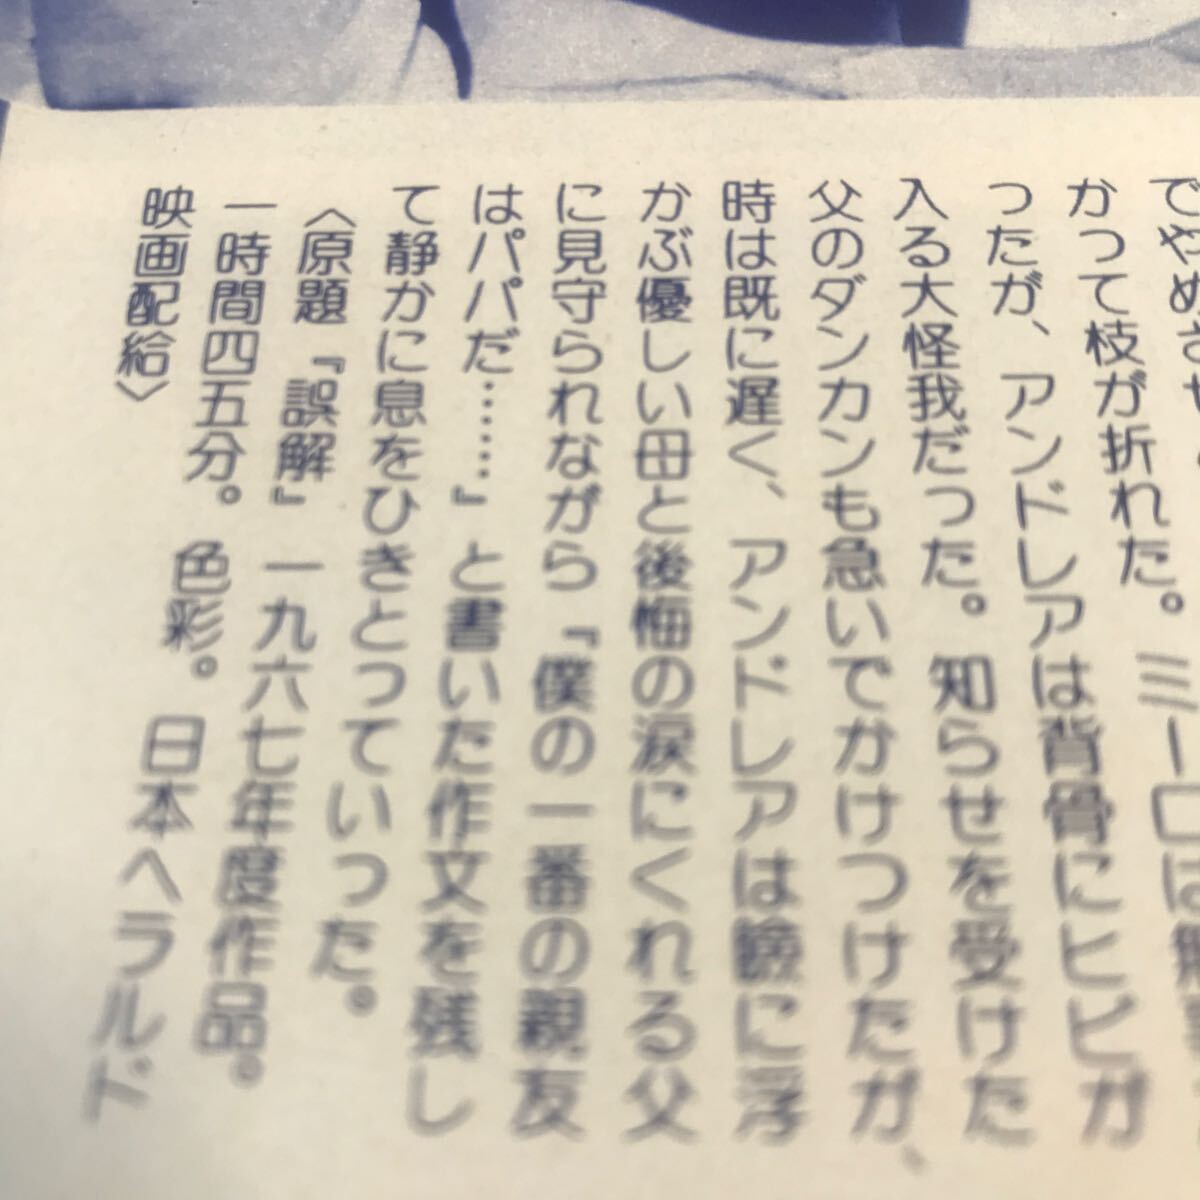 でやめさせ
かって枝が折れた。ミーロは無事
ったが、アンドレアは背骨にヒビが
入る大怪我だった。知らせを受けた
父のダンカンも急いでかけつけたが、
時は既に遅く、アンドレアは瞼に浮
かぶ優しい母と後悔の涙にくれる父
に見守られながら『僕の一番の親友
はパパだ……』と書いた作文を残し
て静かに息をひきとっていった。
〈原題『誤解』一九六七年度作品。
一時間四五分。色彩。日本ヘラルド
映画配給〉